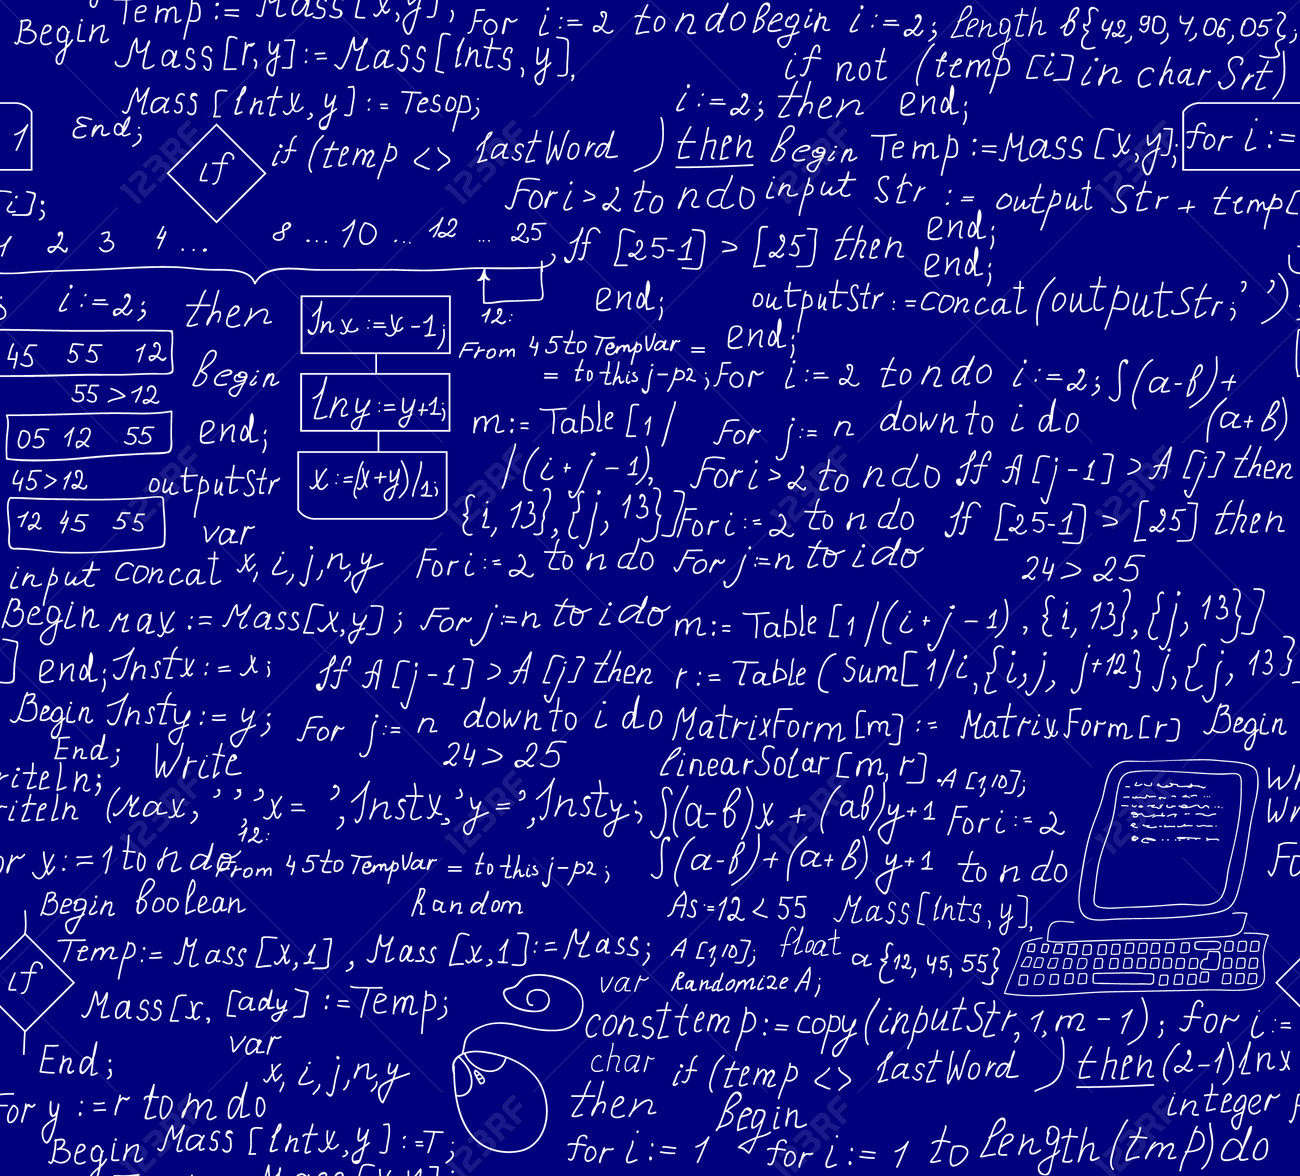 Temp := Mass[x,y], For i:=2 to n do Begin i:=2; length b{42,90,4,06,05};
Begin
Mass[r,y]:=Mass[Ints,y], if not (temp [i] in char Srt)
Mass[Intx,y]:=Tesop; i:=2; then end;
1 End; if if (temp <> lastWord ) then Begin Temp:=Mass[x,y]; for i:=
For i>2 to n do input Str := output Str + temp[
[i];
1 2 3 4... 8...10...12...25, If [25-1] > [25] then end;
end;
i:=2; then Inx:=x-1; 12: end; outputStr:=concat(outputStr;' ')
45 55 12 From 45 to TempVar = end;
begin = to this j-p2; For i:=2 to n do i:=2; ∫(a-b)+
55>12 Iny:=y+1; m:= Table [1/ For j:= n down to i do (a+b)
05 12 55 end;
45>12 outputStr x:=(x+y)/1; /(i+j-1), For i>2 to n do If A[j-1] > A[j] then
12 45 55 var {i,13},{j,13}] For i:=2 to n do If [25-1] > [25] then
input concat x,i,j,n,y For i:=2 to n do For j:=n to i do 24>25
Begin max := Mass[x,y]; For j:=n to i do m:= Table [1/(i+j-1),{i,13},{j,13}]
] end; Instx:=x; If A[j-1] > A[j] then r:= Table (Sum[1/i,{i,j, j+12}j,{j,13}
Begin Insty:=y; For j:= n down to i do MatrixForm[m]:= MatrixForm[r] Begin
End; Write 24>25
riteln; linearSolar[m,r] A[1,10];
riteln (max, ' ',' x= ',Instx,'y =',Insty; ∫(a-b)x + (ab)y+1 For i:=2
12:
or x:=1 to n do From 45 to TempVar = to this j-p2; ∫(a-b)+(a+b) y+1 to n do
Begin boolean Random As:=12<55 Mass[Ints,y],
Temp:= Mass[x,1], Mass[x,1]:=Mass; A[1,10]; float a{12,45,55}
if var Randomize A;
Mass[x, [ady]:=Temp; const temp:=copy(inputStr,1,m-1); for i:=
End; var char if (temp <> lastWord ) then (2-1) Inx
x,i,j,n,y
For y:=r to m do then Begin integer
Begin Mass[Intx,y]:=T; for i:=1 for i:=1 to length(tmp) do